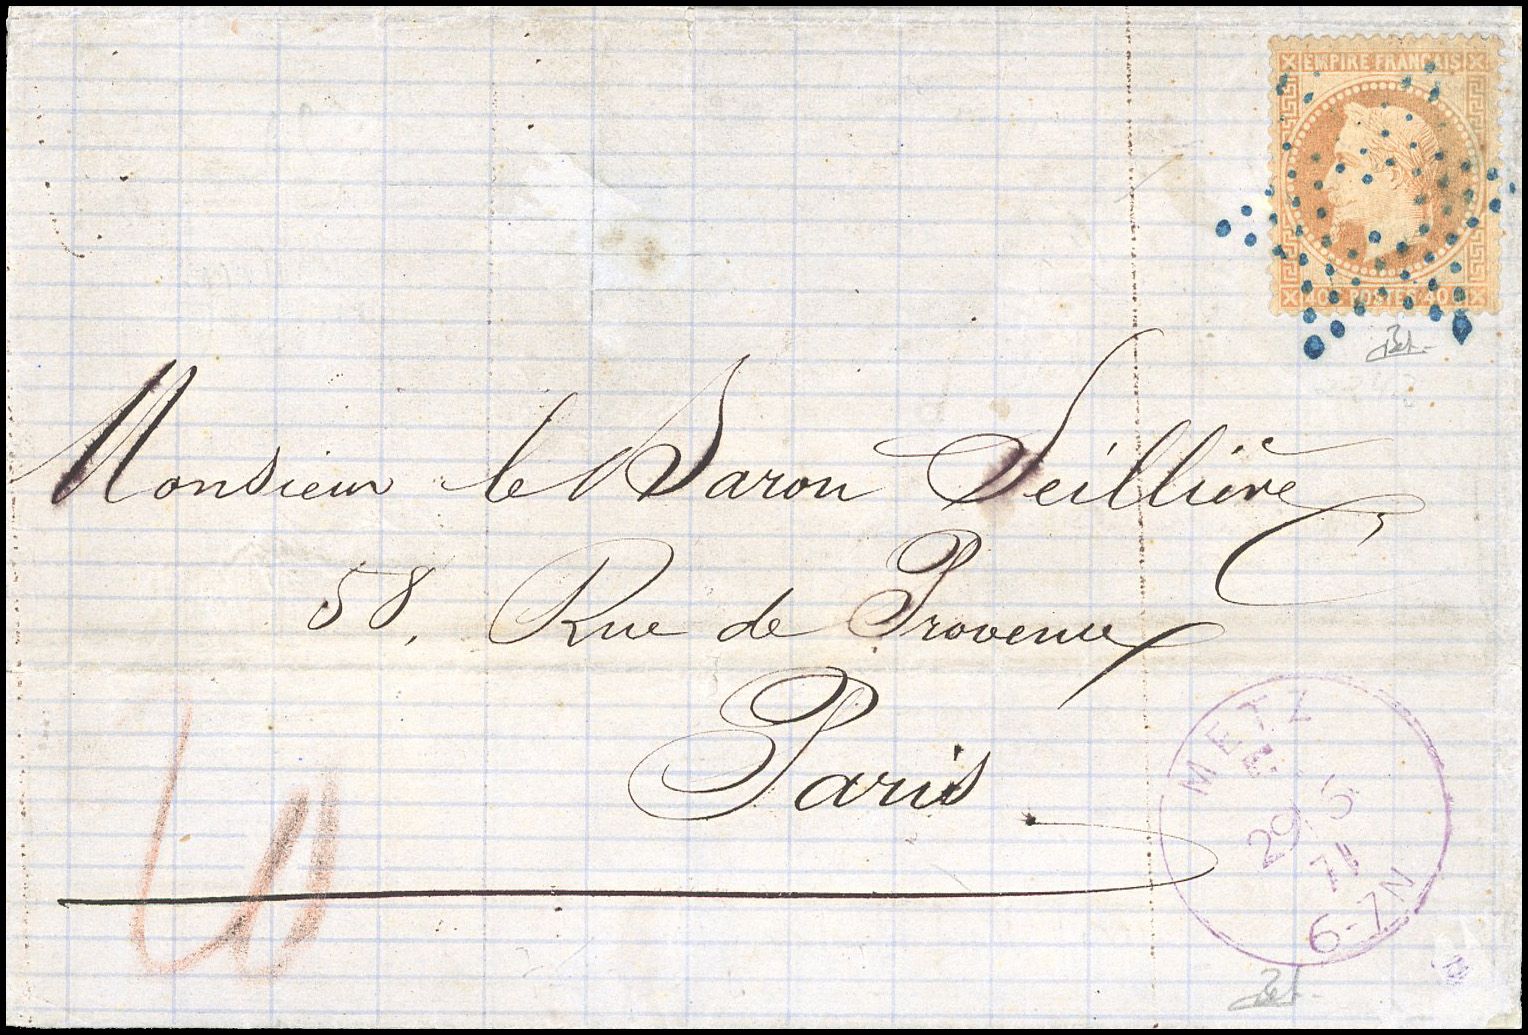 EMPIRE FRANÇAIS
40 C POSTES 40 C
Monsieur le Baron Seillière
58, Rue de Provence
Paris
METZ
29/5
71
6-7N